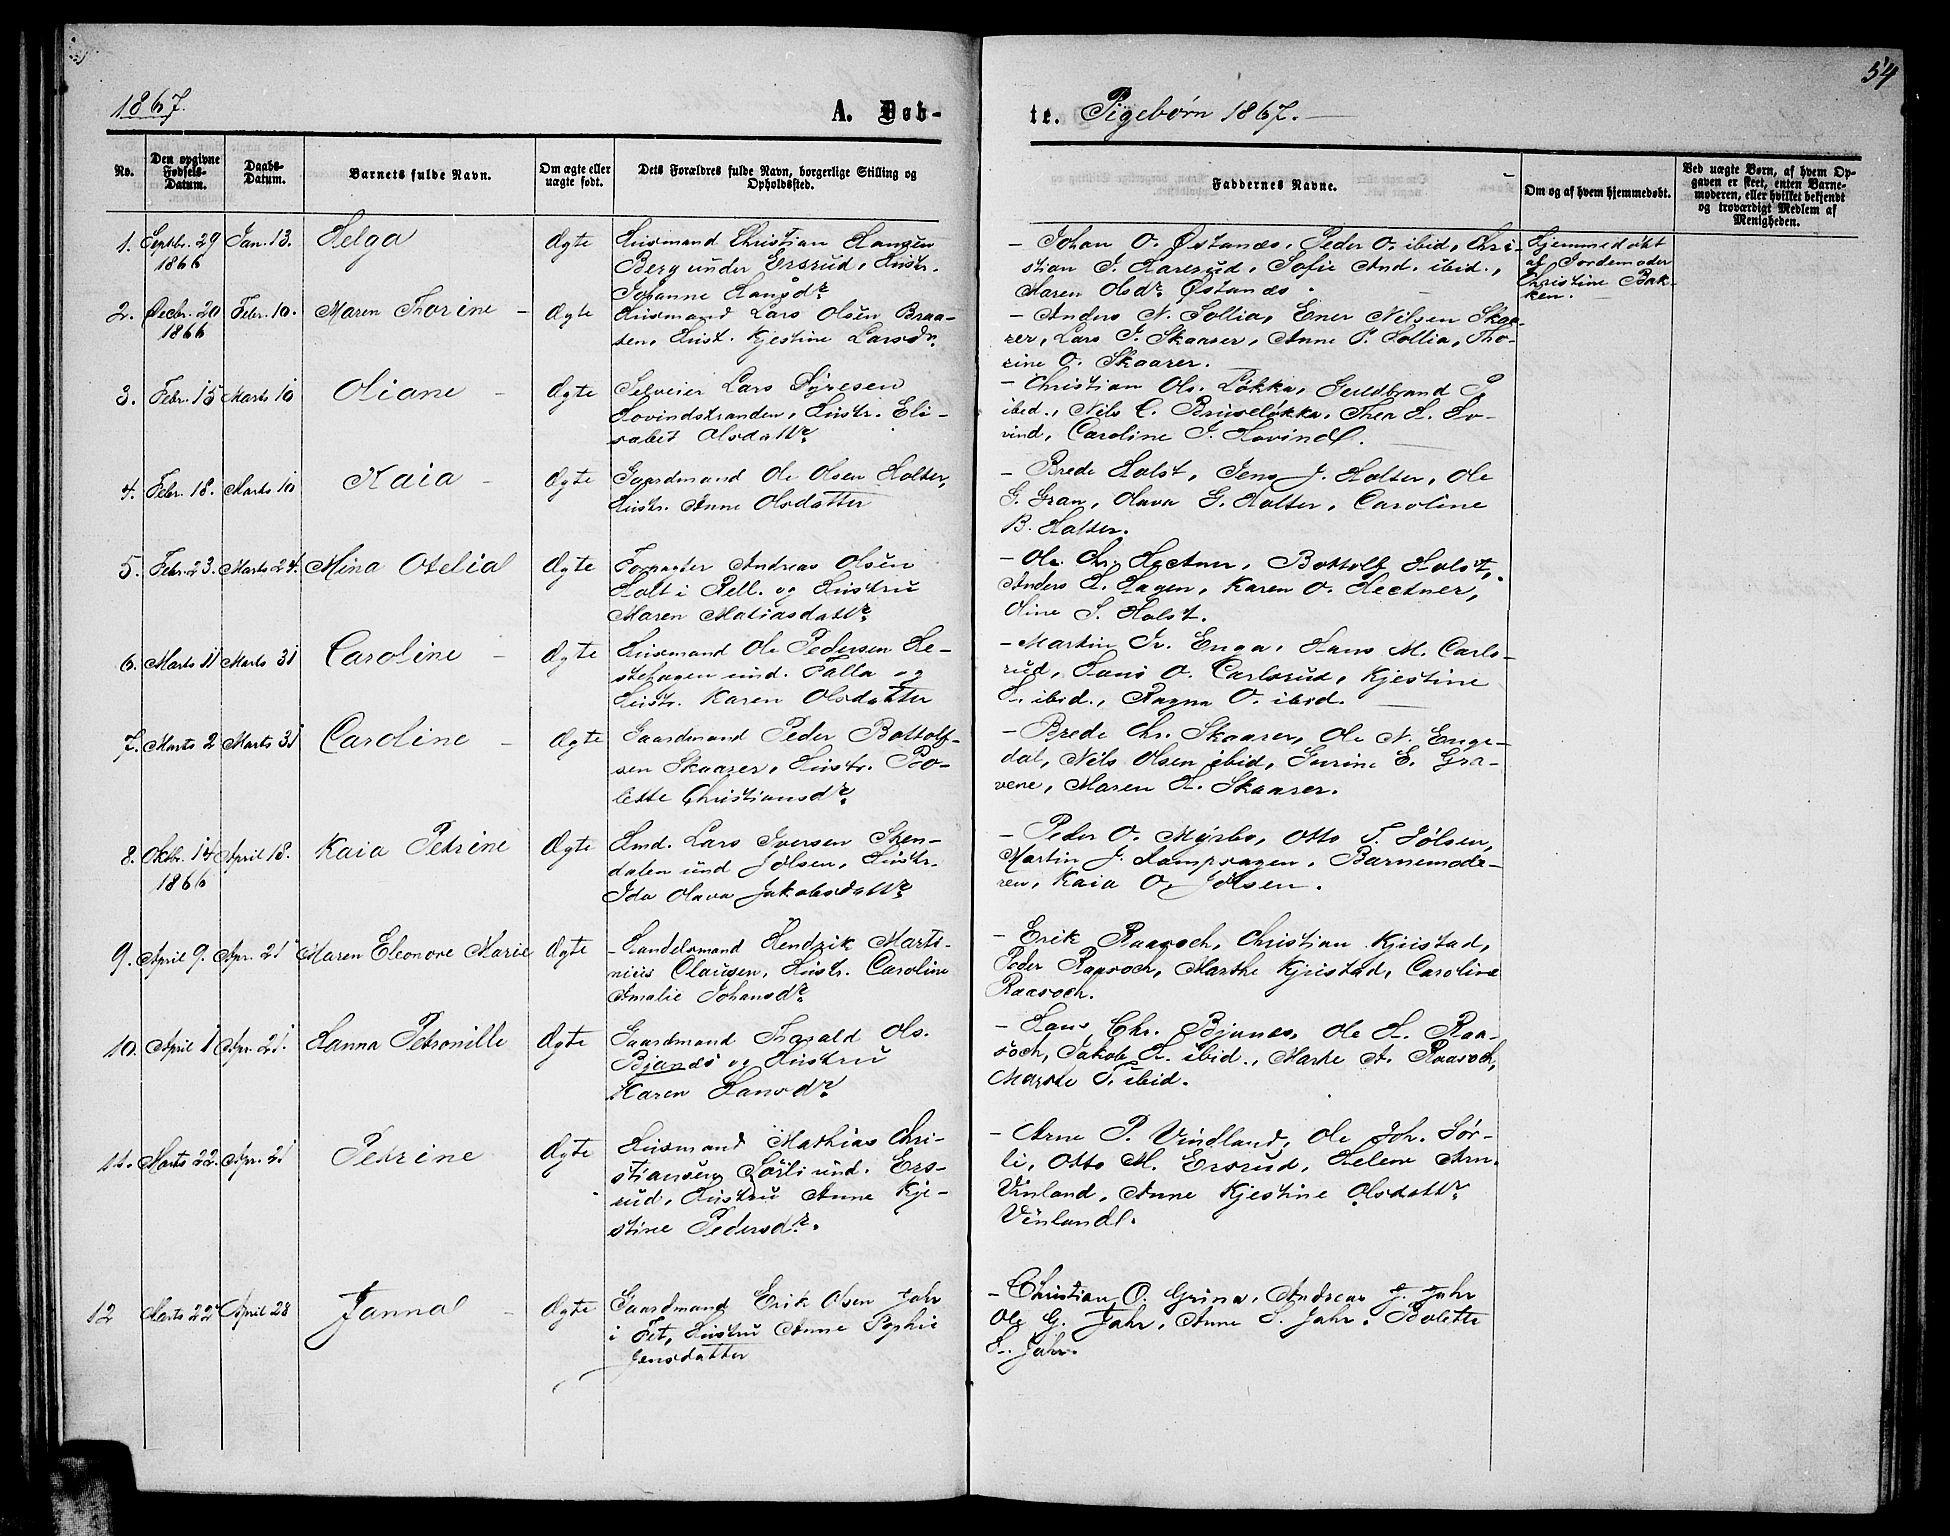 54
1867.
A. Døb-
te. Pigebørn 1867.
No.
Den opgivne Fødsels-Datum.
Daabs-Datum.
Barnets fulde Navn.
Om ægte eller uægte født.
Dets Forældres fulde Navn, borgerlige Stilling og Opholdssted.
Faddernes Navne.
Om og af hvem hjemmedøbt.
Ved uægte Børn, af hvem Opgaven er skeet, enten Barnemoderen, eller hvilket bekjendt og troværdigt Medlem af Menigheden.
1. Septbr. 29 1866 Jan. 13. Helga Ægte
Huusmand Christian Hansen
Berg under Ersrud, Hustr.
Johanne Hansdr.
- Johan O. Østanes, Peder O. ibid, Chri-
stian J. Harerud, Sofie And. ibid.,
Maren Olsdr Østanes.
Hjemmedøbt
af Jordemoder
Christine Bak-
ken.
2. Decbr. 20 1866 Febr. 10. Maren Thorine - Ægte
Huusmand Lars Olsen Braa-
ten, Hust. Kjestine Larsdr.
- Anders N. Sollia, Ener Nilsen Skaa-
rer, Lars J. Skaarer, Anne P. Sollia, Tho-
rine O. Skaarer.
3. Febr. 15 Marts 10 Oliane - Ægte
Selveier Lars Syresen
Hovindstranden, Hustr. Eli-
sabet Olsdattr.
- Christian Ols. Løkka, Guldbrand P.
ibid., Nils C. Bruseløkka, Thea L. Ho-
vind, Caroline J. Hovind.
4. Febr. 18. Marts 10 Kaia - Ægte
Gaardmand Ole Olsen Holter,
Hustr. Anne Olsdatter
- Brede Holst, Jens J. Holter, Ole
G. Gran, Olava G. Holter, Caroline
B. Holter.
5. Febr. 23. Marts 24. Mina Otelia Ægte
Forpagter Andreas Olsen
Holt i Rell. og Hustru
Maren Matiasdattr.
- Ole Chr. Hectner, Bottolf Holst,
Anders H. Hagen, Karen O. Hectner,
Oline S. Holst.
6. Marts 11 Marts 31 Caroline - Ægte
Huusmand Ole Pedersen He-
stehagen und. Falla og
Hustr. Karen Olsdatter
- Martin Iv. Enga, Hans M. Carls-
rud, Hans O. Carlsrud, Kjestine
L. ibid., Ragna O. ibid.
7. Marts 2 Marts 31 Caroline - Ægte
Gaardmand Peder Bottolf-
sen Skaarer, Hustr. Bo-
lette Christiansdr.
- Brede Chr. Skaarer, Ole N. Enge-
dal, Nils Olsen ibid, Gurine E. Gra-
vene, Maren L. Skaarer.
8. Oktbr. 14 1866 April 18. Kaia Petrine Ægte
Hmd. Lars Iversen Sten-
dalen und Jølsen, Hustr.
Ida Olava Jakobsdattr.
- Peder O. Myrbo, Otto T. Jølsen,
Martin J. Kampsagen, Barnemode-
ren, Kaia O. Jølsen.
9. April 9. Apr. 21 Maren Eleonore Marie Ægte
Handelsmand Hendrik Marti-
nius Clausen, Hustr. Caroline
Amalie Johansdr.
- Erik Raasoch, Christian Kjustad,
Peder Raasoch, Marthe Kjustad, Caroline
Raasoch.
10. April 1 Apr. 21. Hanna Petronille Ægte
Gaardmand Harald Ols.
Bjanes og Hustru
Karen Hansdr.
- Hans Chr. Bjanes, Ole H. Raa-
soch, Jakob H. ibid., Marte A. Raasoch,
Marthe T. ibid.
11. Marts 22. Apr. 21 Petrine Ægte
Huusmand Mathias Chri-
stiansen Sørli und. Ers-
rud, Hustru Anne Kje-
stine Pedersdr.
- Arne P. Vindland, Ole Joh. Sør-
li, Otto M. Ersrud, Helene Arn.
Vinland, Anne Kjestine Olsdattr.
Vinland.
12 Marts 22 April 28 Janna - Ægte
Gaardmand Erik Olsen Jahr
i Fet, Hustru Anne Sophie
Jensdatter
- Christian O. Grina, Andreas J. Jahr
Ole G. Jahr, Anne S. Jahr, Bolette
E. Jahr.